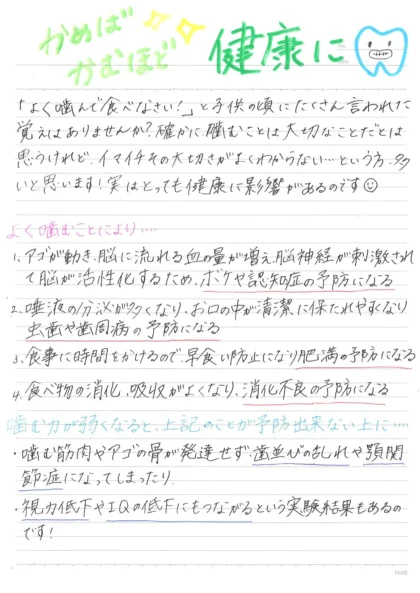 かめば
かむほど
健康に
「よく噛んで食べなさい!」と子供の頃にたくさん言われた
覚えはありませんか?確かに噛むことは大切なことだとは
思うけれど、イマイチその大切さがよくわからない…という方、多
いと思います!実はとっても健康に影響があるのです☺
よく噛むことにより….
1、アゴが動き、脳に流れる血の量が増え、脳神経が刺激され
て脳が活性化するため、ボケや認知症の予防になる
2、唾液の分泌が多くなり、お口の中が清潔に保たれやすくなり
虫歯や歯周病の予防になる
3、食事に時間をかけるので、早食い防止になり肥満の予防になる
4、食べ物の消化、吸収がよくなり、消化不良の予防になる
噛む力が弱くなると、上記のことが予防出来ない上に….
・噛む筋肉やアゴの骨が発達せず、歯並びの乱れや顎関
節症になってしまったり、
・視力低下やIQの低下にもつながるという実験結果もあるの
です!